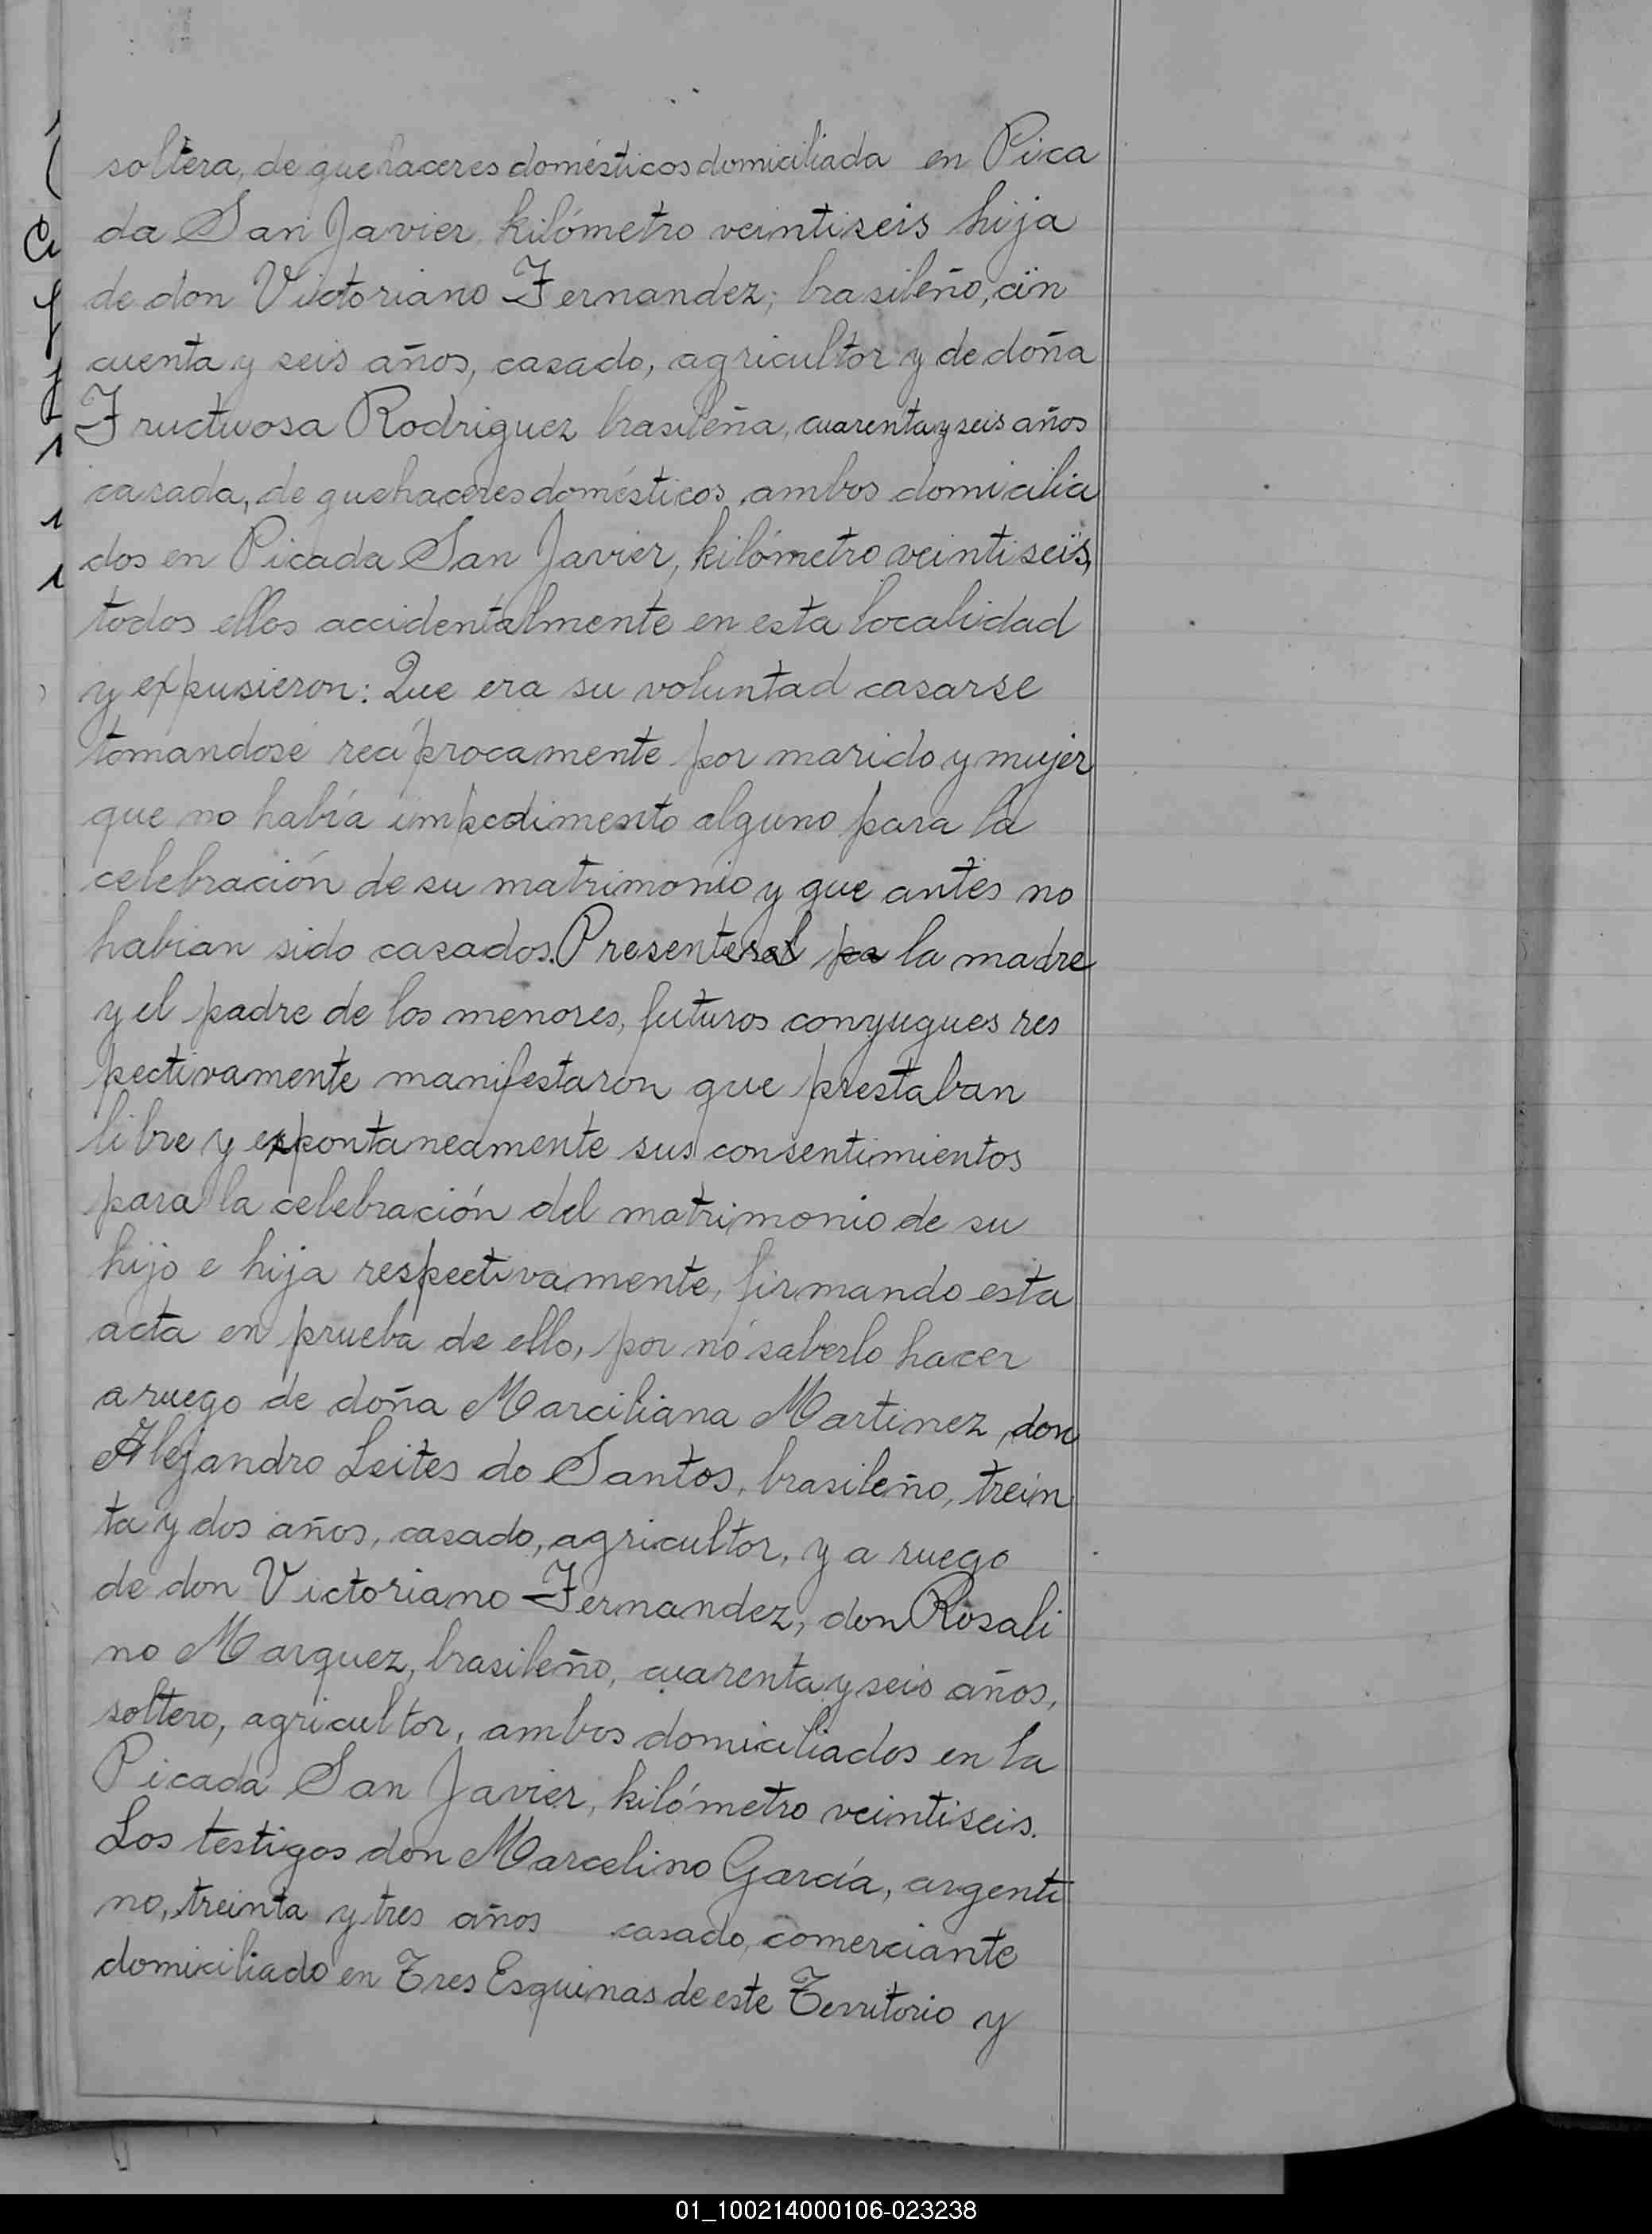 soltera, de quehaceres domésticos domiciliada en Pica
da San Javier, kilómetro veintiseis hija
de don Victoriano Fernandez, brasileño, cin
cuenta y seis años, casado, agricultor y de doña
Fructuosa Rodriguez brasileña, cuarenta y seis años
casada, de quehaceres domésticos, ambos domicilia
dos en Picada San Javier, kilómetro veintiseis,
todos ellos accidentalmente en esta localidad
y expusieron: Que era su voluntad casarse
tomandose recíprocamente por marido y mujer
que no había impedimento alguno para la
celebración de su matrimonio y que antes no
habian sido casados. Presentes el pa la madre
y el padre de los menores, futuros conyugues res
pectivamente manifestaron que prestaban
libre y expontaneamente sus consentimientos
para la celebración del matrimonio de su
hijo e hija respectivamente, firmando esta
acta en prueba de ello, por no saberlo hacer
a ruego de doña Marciliana Martinez, don
Alejandro Leites do Santos, brasileño, trein
ta y dos años, casado, agricultor, y a ruego
de don Victoriano Fernandez, don Rosali
no Marquez, brasileño, cuarenta y seis años,
soltero, agricultor, ambos domiciliados en la
Picada San Javier, kilómetro veintiseis.
Los testigos don Marcelino García, argenti
no, treinta y tres años casado, comerciante
domiciliado en Tres Esquinas de este Territorio y
01_100214000106-023238